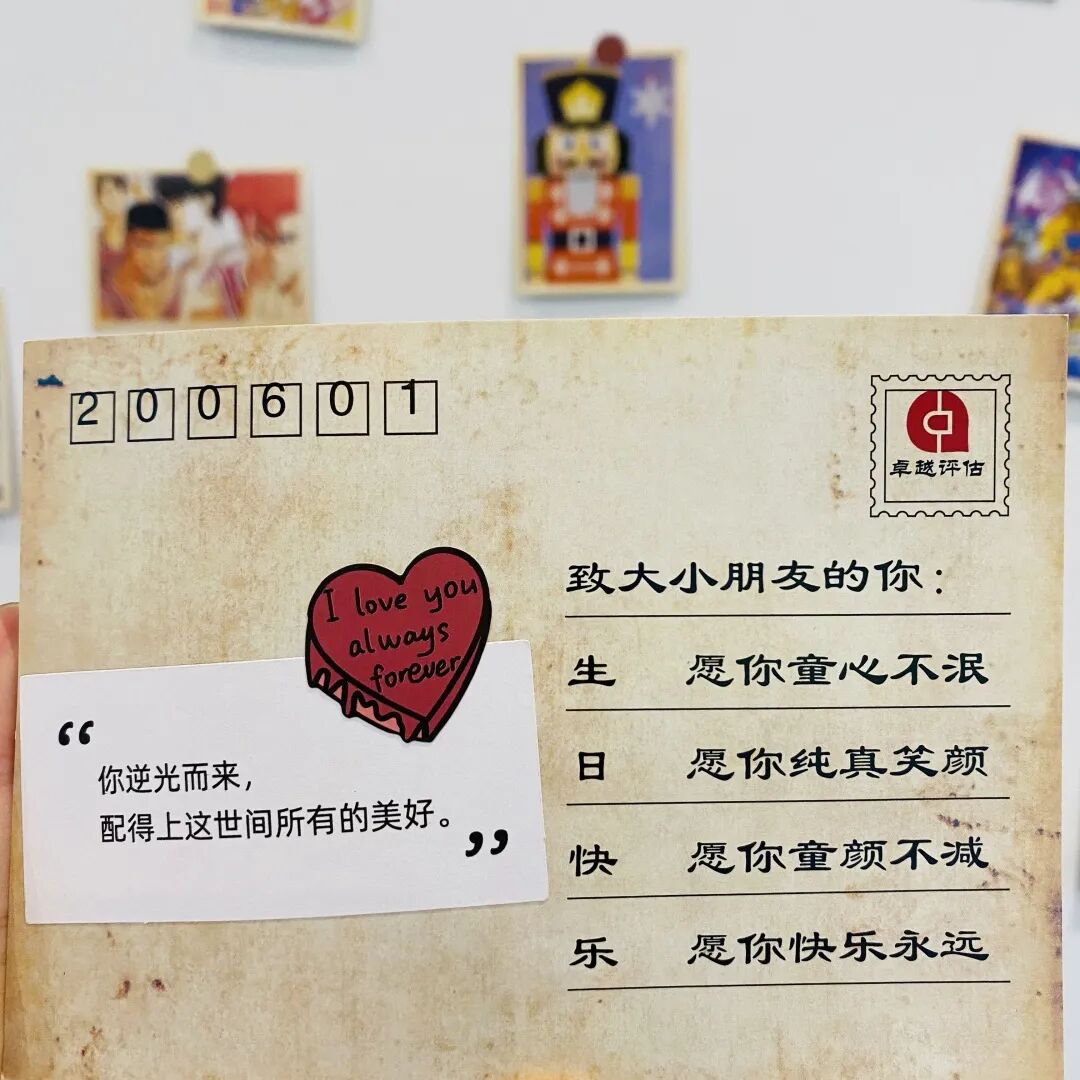 200601
卓越评估
I love you
always
forever
“
你逆光而来，
配得上这世间所有的美好。
”
致大小朋友的你：
生 愿你童心不泯
日 愿你纯真笑颜
快 愿你童颜不减
乐 愿你快乐永远